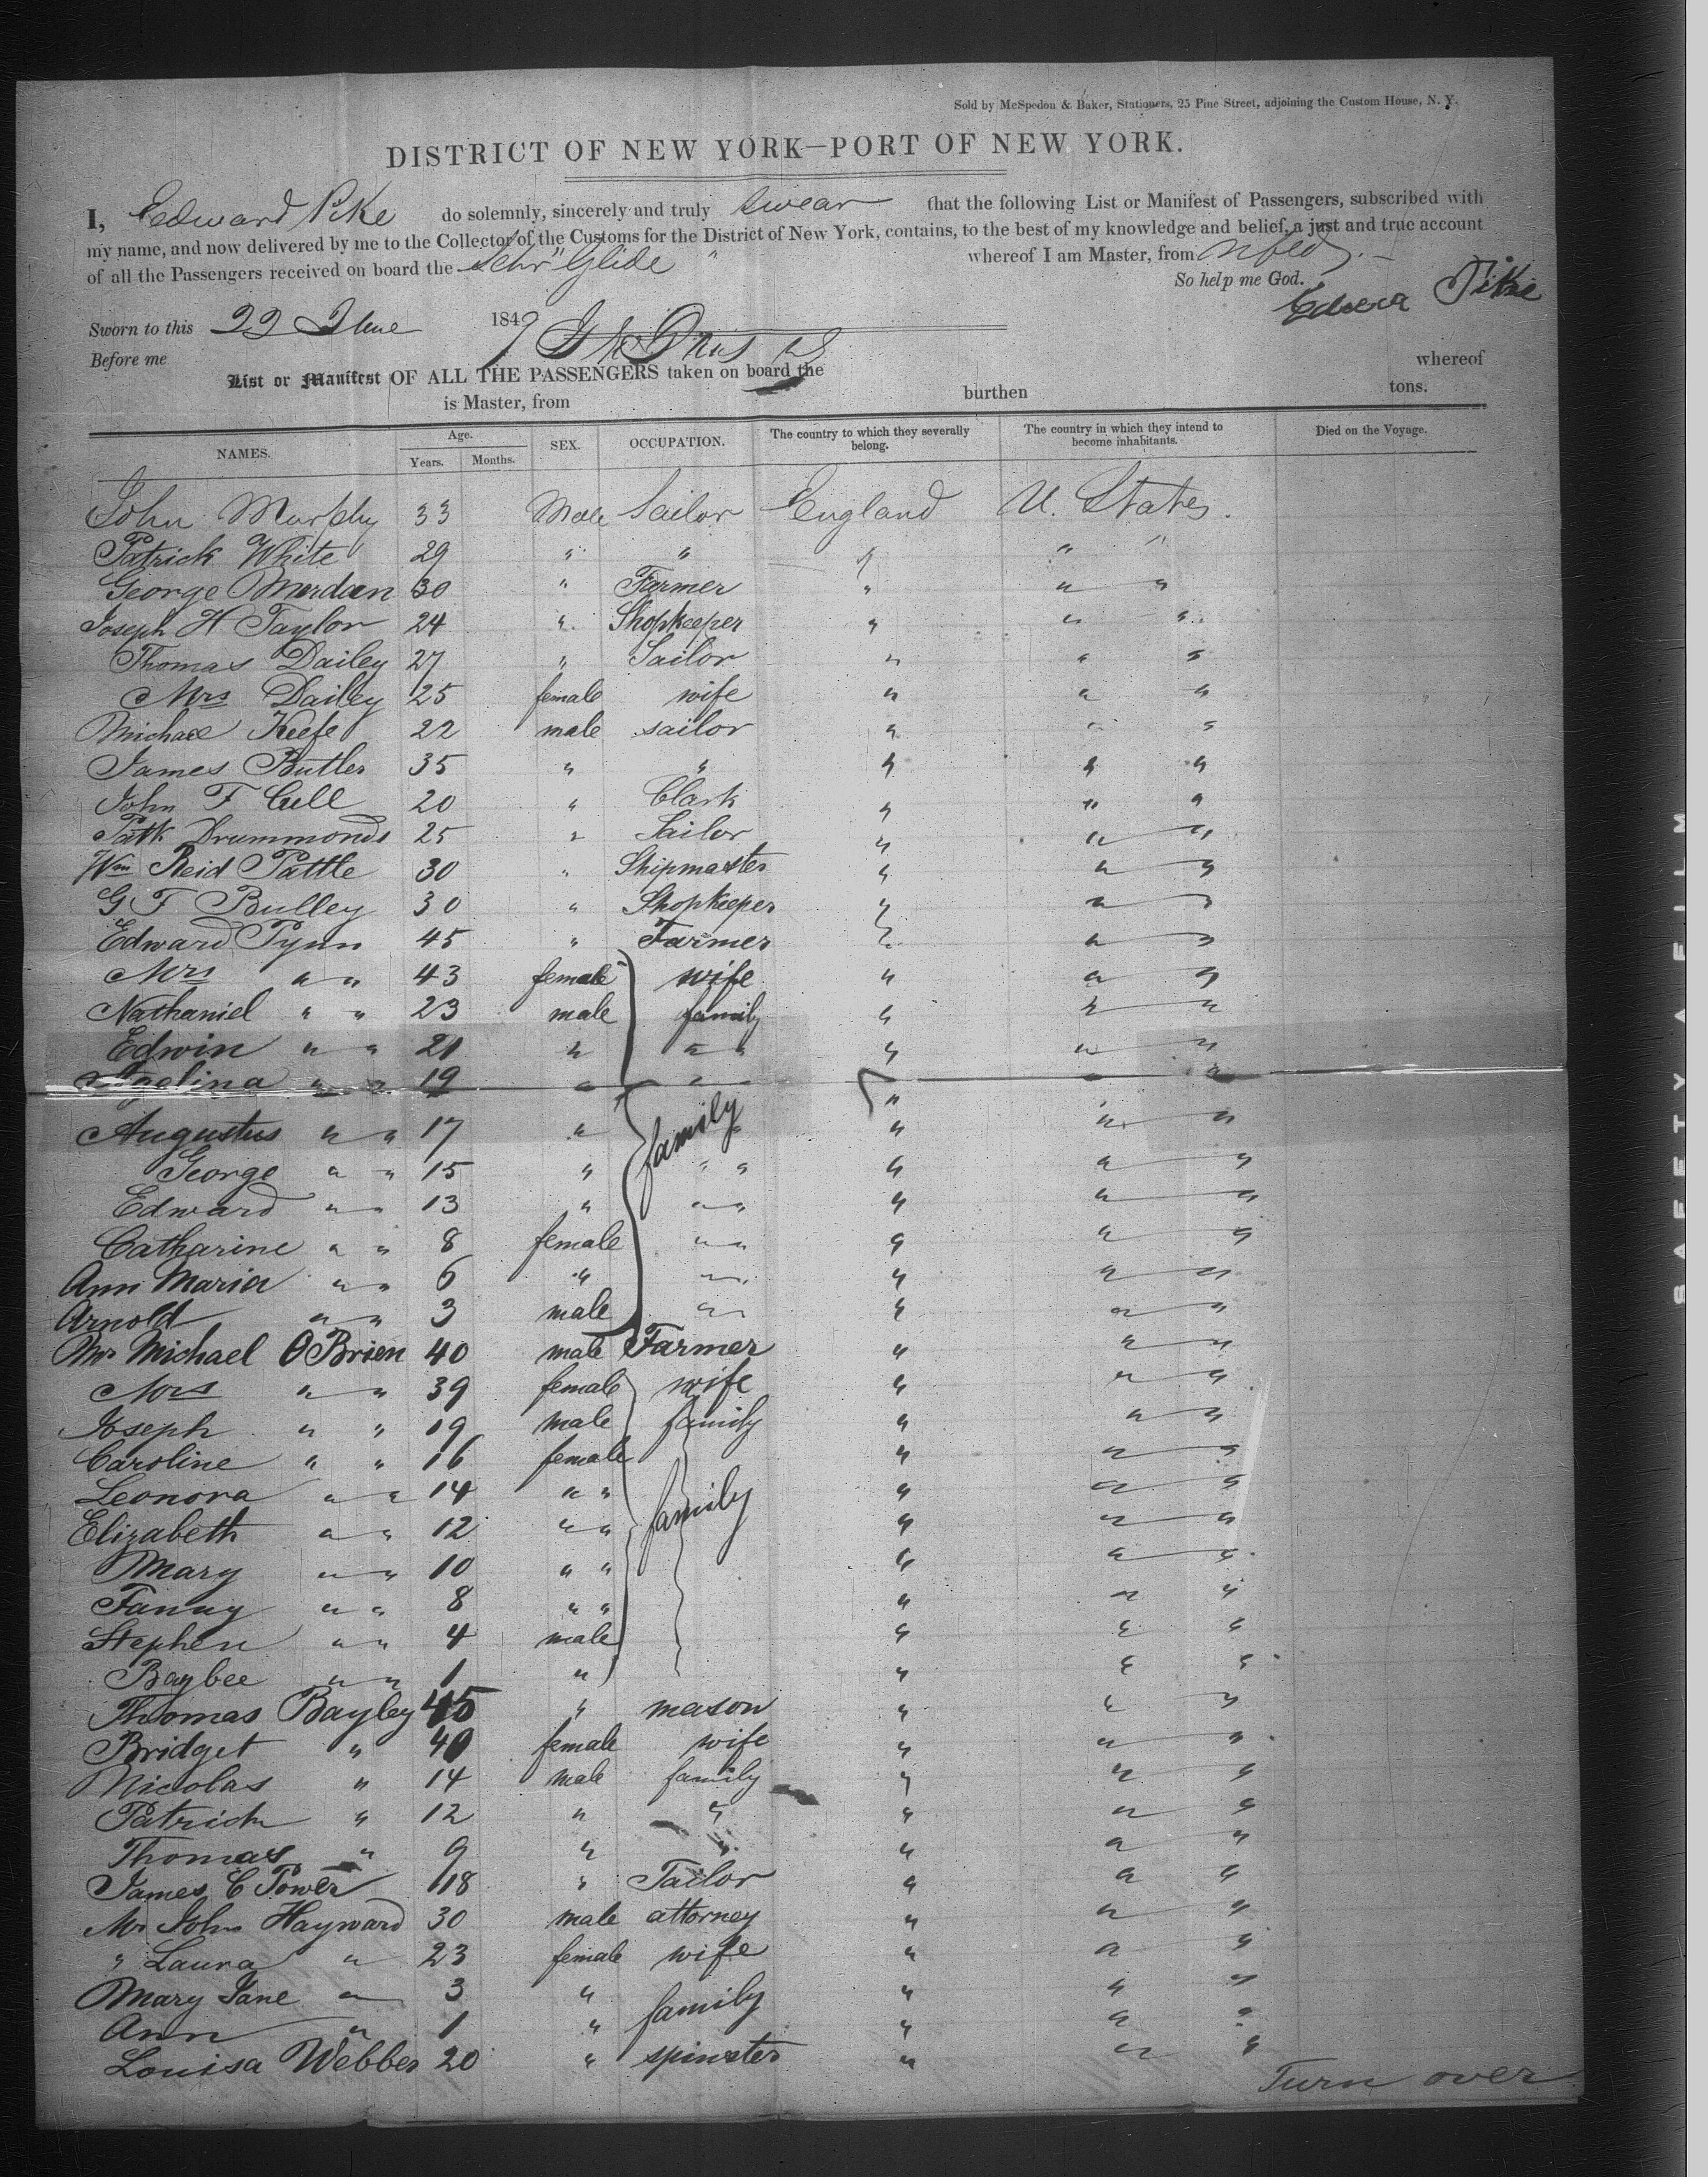 Sold by McSpedon & Baker, Stationers, 25 Pine Street, adjoining the Custom House, N. Y.
DISTRICT OF NEW YORK—PORT OF NEW YORK.
I, Edward Pike do solemnly, sincerely and truly swear that the following List or Manifest of Passengers, subscribed with
my name, and now delivered by me to the Collector of the Customs for the District of New York, contains, to the best of my knowledge and belief, a just and true account
of all the Passengers received on board the Schr "Glide" whereof I am Master, from Nfld.
So help me God.
Pike
Sworn to this 22 June 1849
Before me
whereof
List or Manifest OF ALL THE PASSENGERS taken on board the
is Master, from burthen tons.
NAMES. Age. Years. Months. SEX. OCCUPATION. The country to which they severally belong. The country in which they intend to become inhabitants. Died on the Voyage.
John Murphy 33 Male Sailor England U. States.
Patrick White 29 " " " " "
George 30 " Farmer " " "
Joseph H Taylor 24 " Shopkeeper " " "
Thomas Dailey 27 " Sailor " " "
Mrs Dailey 25 female wife " " "
Michael Keefe 22 male sailor " " "
James Butler 35 " " " " "
John F Cull 20 " Clark " " "
Patk Drummonds 25 " Sailor " " "
Wm Reid Pattle 30 " Shipmaster " " "
G F Bulley 30 " Shopkeeper " " "
Edward Pynn 45 " Farmer " " "
Mrs " " 43 female wife " " "
Nathaniel " " 23 male family " " "
Edwin " " 21 " " " " " "
" " 19 " " " " "
Augustus " " 17 " family " " " "
George " " 15 " " " " " "
Edward " " 13 " " " " " "
Catharine " " 8 female " " " " "
Ann Maria " " 6 " " " " " "
Arnold " " 3 male " " " " "
Mr Michael O Brien 40 male Farmer " " "
Mrs " " 39 female wife " " "
Joseph " " 19 male family " " "
Caroline " " 16 female " " "
Leonora " " 14 " " family " " "
Elizabeth " " 12 " " " " "
Mary " " 10 " " " " "
Fanny " " 8 " " " " "
Stephen " " 4 male " " "
Baybee " " 1 " " " "
Thomas Bayley 45 " mason " " "
Bridget " 40 female wife " " "
Nicolas " 14 male family " " "
Patrick " 12 " " " " "
Thomas " 9 " " " " "
James C Power 18 " Tailor " " "
Mr John Hayward 30 male attorney " " "
" Laura " 23 female wife " " "
Mary Jane " 3 " family " " "
Ann " 1 " " " "
Louisa Webber 20 " spinster " " "
Turn over
SAFETY FILM